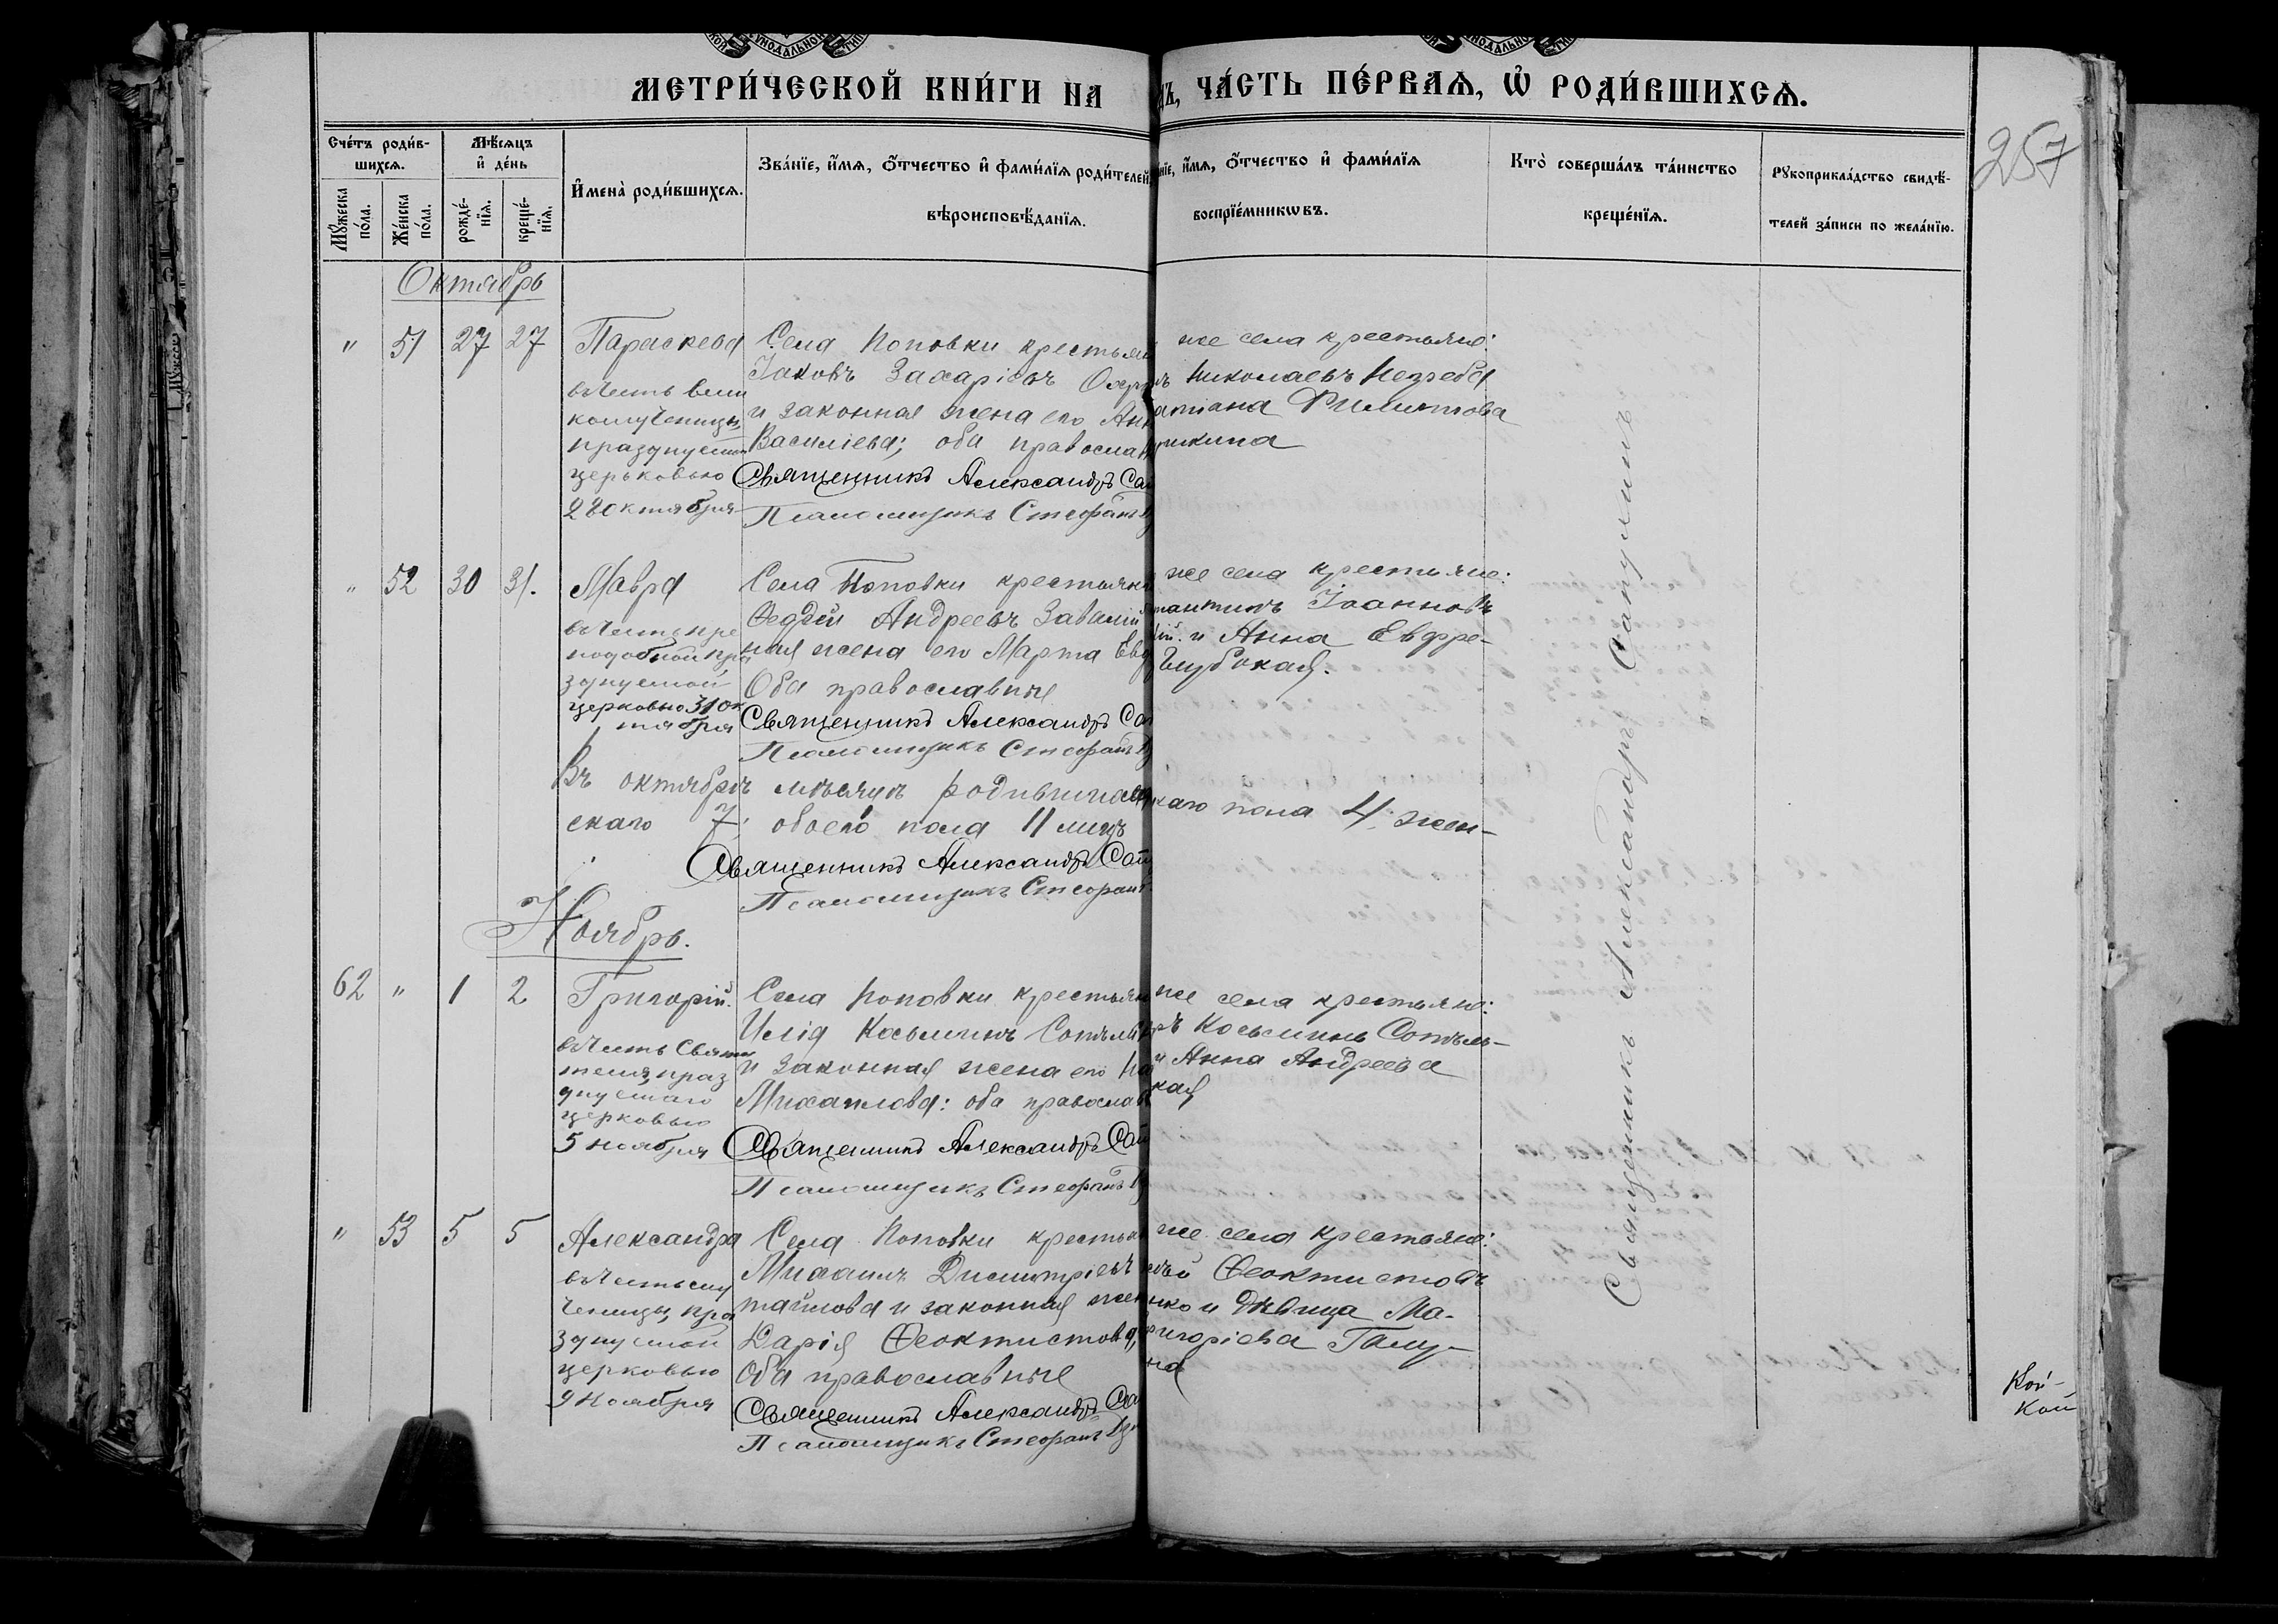 МЕТРИ́ЧЕСКОЙ КНИ́ГИ НА
Ъ, ЧА́СТЬ ПЕ́РВАѦ, Ѡ҆ РОДИ́ВШИХСѦ.
257
Сче́тъ роди́в-
шихся.
Мѣсяцъ
и҆ де́нь
Му́жеска по́ла.
Же́нска по́ла.
рожде́-
нїѧ.
креще́-
нїѧ.
И҆мена̀ роди́вшихсѧ.
Зва́нїе, и҆́мѧ, ѻ҆́тчество и҆ фами́лїѧ роди́телей
вѣроисповѣ́данїѧ.
нїе, и҆́мѧ, ѻ҆́тчество и҆ фами́лїѧ
воспрїе́мникѡвъ.
Кто̀ соверша́лъ та́инство
креще́нїѧ.
Рꙋкоприкла́дство свидѣ́-
телей за́писи по жела́нїю.
Октябрь
" 51 27 27 Параскева
въ честь вели
комученицы,
празднуемой
церьковью
28 октября
Села Поповки крестьян
Іаковъ Захаріевъ
и законная жена его Анн
Василіева; оба православн
Священникъ Александръ Сат
Псаломщикъ Стефанъ
же села крестьяне:
ъ Николаевъ Негреба
атіана Филиппова
" 52 30 31. Мавра
въ честь пре
подобной пра
зднуемой
церковью 31 ок
тября
Села Поповки крестьянин
Андреевъ
ная жена его Марта Евд
Оба православные
Священникъ Александръ Сат
Псаломщикъ Стефанъ
же села крестьяне:
стантинъ Іоанновъ
кій. и Анна Евфре-
Глубокая.
Въ октябрѣ мѣсяцѣ родившихся
каго пола 4; жен-
скаго 7; обоего пола 11 лицъ
Священникъ Александръ Сату
Псаломщикъ Стефанъ
Ноябрь.
62 " 1 2 Григорій.
въ честь Святи
теля, праз
днуемаго
церковью
5 ноября
Села Поповки крестьян
Илія Косьминъ
и законная жена его
Михаилова: оба православн
Священникъ Александръ Сат
Псаломщикъ Стефанъ
же села крестьяне:
ръ Косьминъ
и Анна Андреева
кая
" 53 5 5 Александра
въ честь му
ченицы, пра
зднуемой
церковью
9 Ноября
Села Поповки крестьян
Михаилъ Димитріевъ
и законная жен
Дарія Феоктистова,
Оба православные
Священникъ Александръ Са
Псаломщикъ Стефанъ
же села крестьяне:
ѣй Феоктистовъ
нко и дѣвица Ма-
ригорієва
на
Священникъ Александръ Сатулинъ